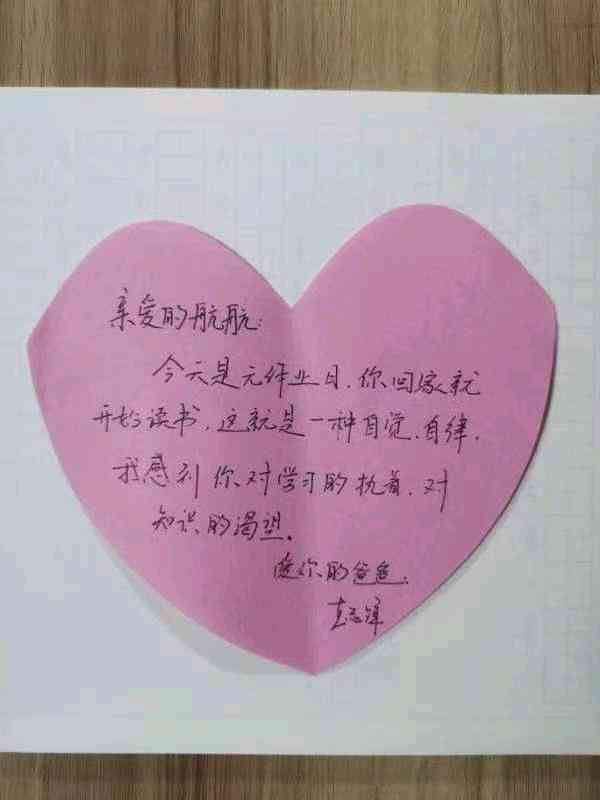 亲爱的航航:
今天是无作业日.你回家就
开始读书.这就是一种自觉.自律.
我感到你对学习的执着.对
知识的渴望.
爱你的爸爸.